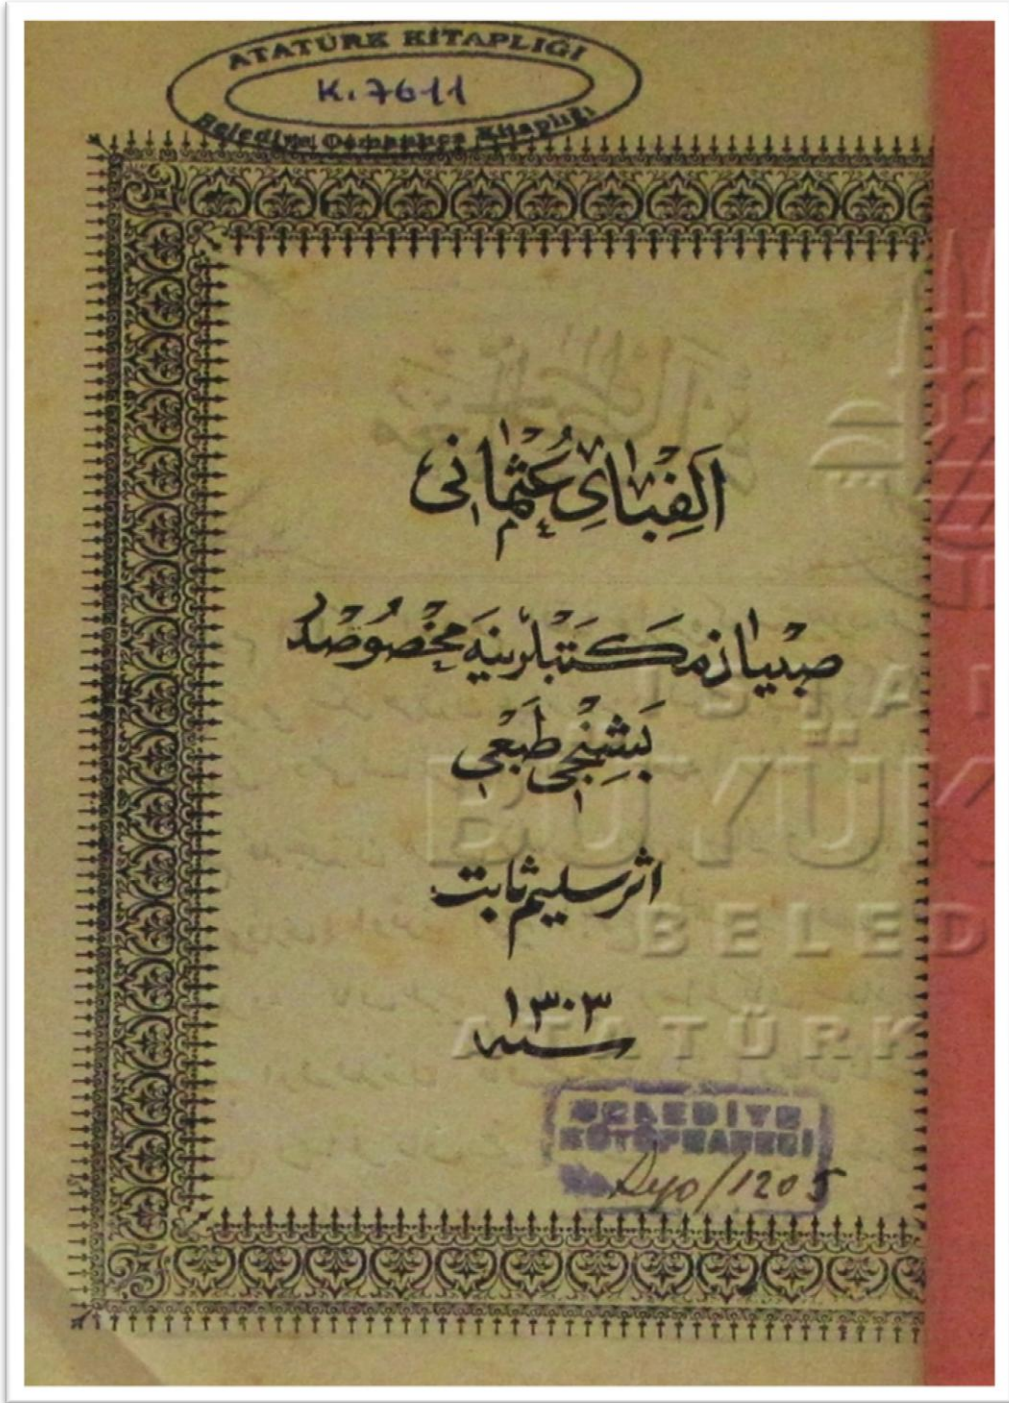 ATATÜRK KİTAPLIĞI
K. 7611
Belediye Osmanlıca Kitaplığı
اَلِفْبَایِ عُثْمَانِی
صبیان مکتبلرینه مخصوصدر
بشنجی طبعی
اثر سلیم ثابت
١٣٠٣
سنه
BELEDİYE
KÜTÜPHANESİ
No. /1205
İSTAN
BÜYÜK
BELED
ATATÜRK